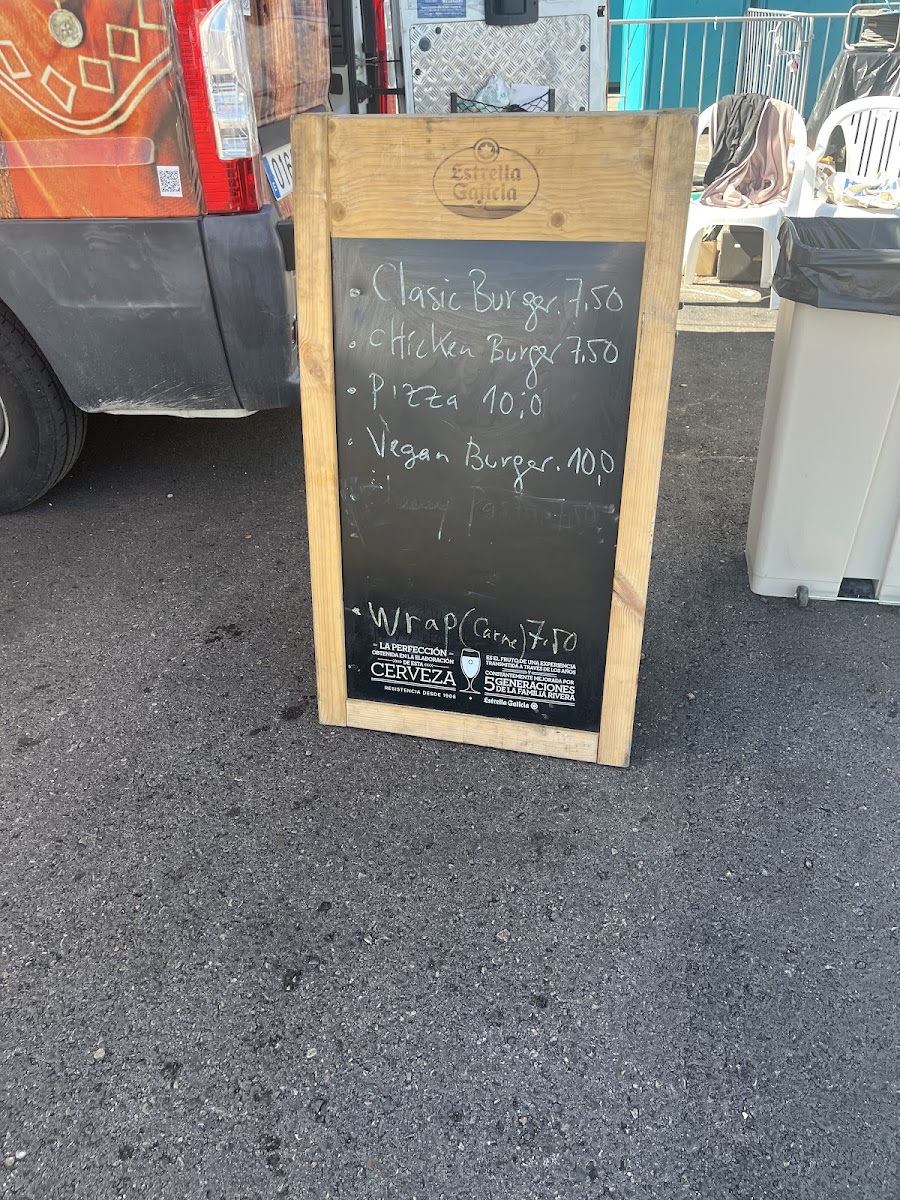 016
Estrella
Galicia
• Clasic Burger. 7,50
• CHicken Burger 7,50
• Pizza 10,0
• Vegan Burger. 10,0
• Wrap (Carne) 7.50
- LA PERFECCIÓN -
OBTENIDA EN LA ELABORACIÓN
DE ESTA
CERVEZA
RESISTENCIA DESDE 1906
ES EL FRUTO DE UNA EXPERIENCIA
TRANSMITIDA A TRAVÉS DE LOS AÑOS
Y
CONSTANTEMENTE MEJORADA POR
5 GENERACIONES
DE LA FAMILIA RIVERA
Estrella Galicia